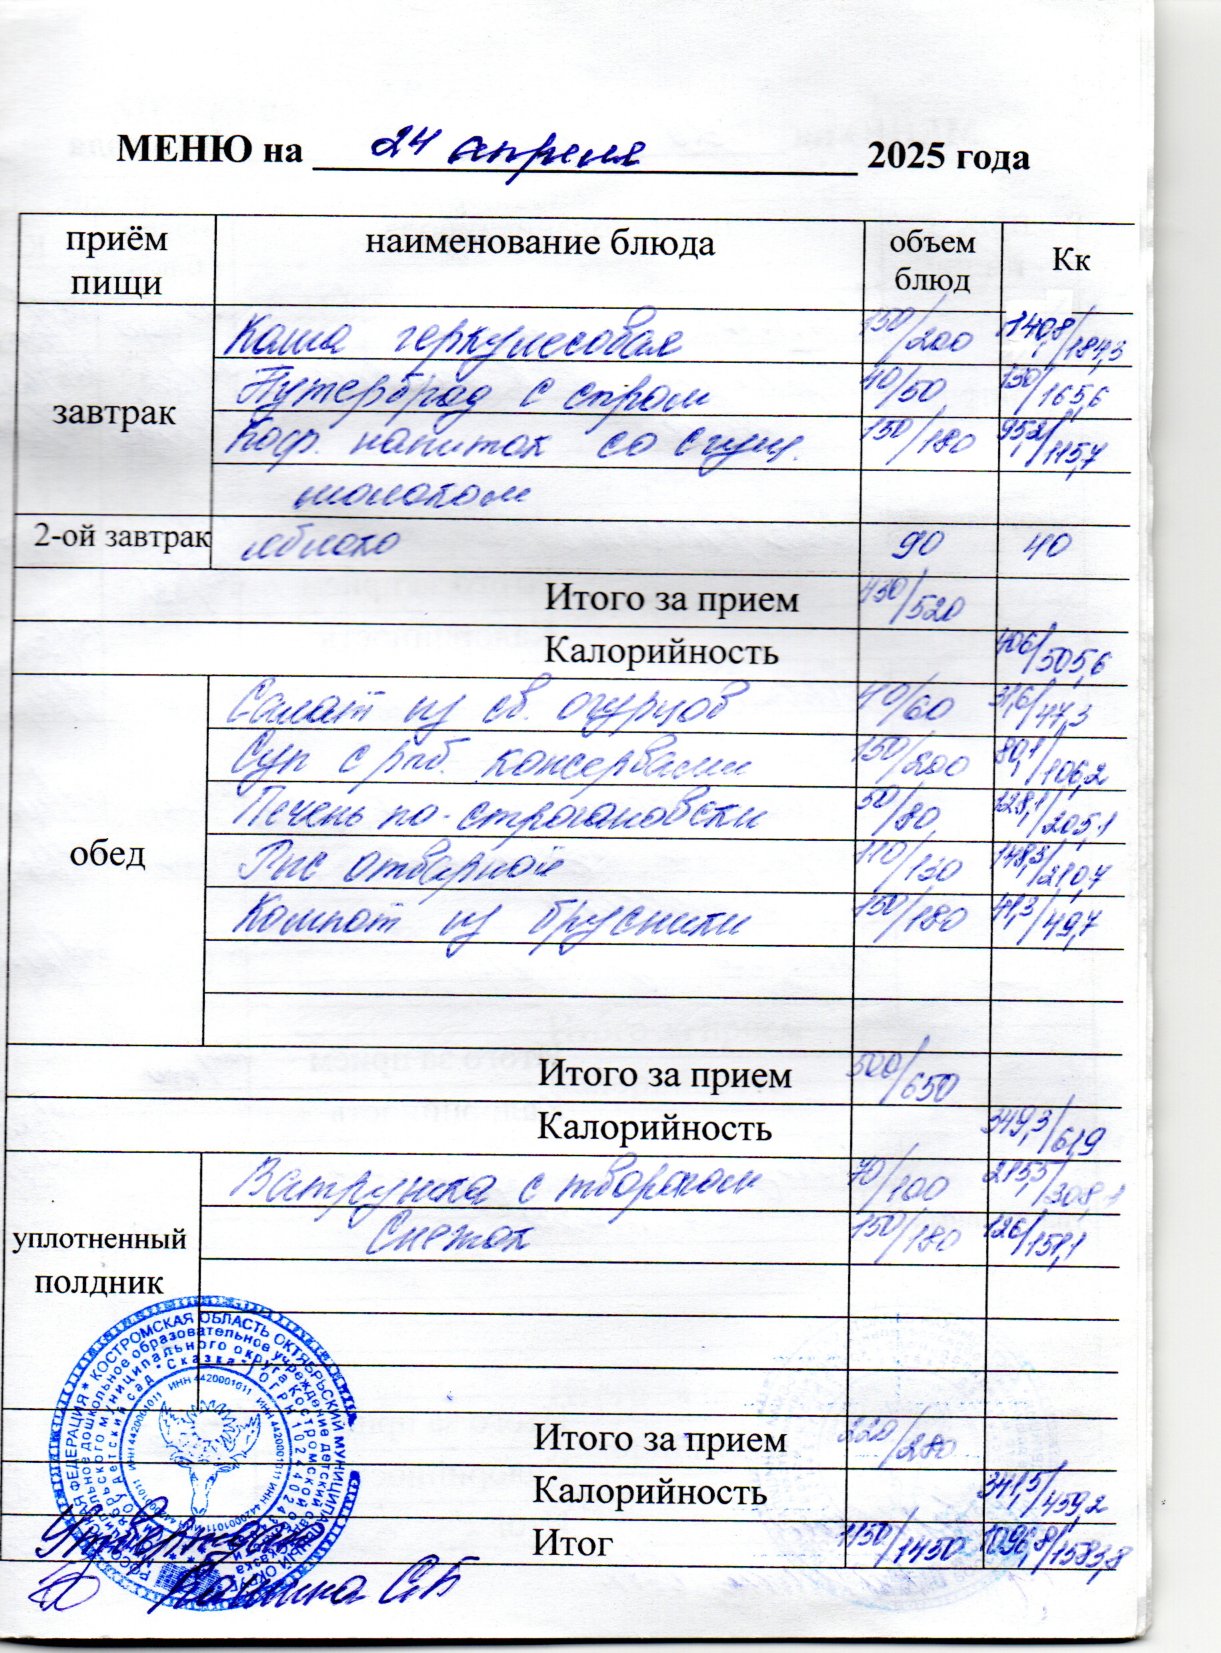 МЕНЮ на 24 апреля 2025 года
приём пищи наименование блюда объем блюд Кк
завтрак
Каша геркулесовая 150/200 140,8/184,3
Бутерброд с сыром 40/50 130/165,6
Коф. напиток со сгущ. 150/180 95,2/115,7
молоком
2-ой завтрак яблоко 90 40
Итого за прием 430/520
Калорийность 406/505,6
обед
Салат из св. огурцов 40/60 31,6/47,3
Суп с рыб. консервами 150/200 80,1/106,2
Печень по-строгановски 50/80 128,1/205,1
Рис отварной 110/130 148,3/210,7
Компот из брусники 150/180 41,3/49,7
Итого за прием 500/650
Калорийность 349,3/619
уплотненный полдник
Ватрушка с творогом 70/100 215,5/308,1
Снежок 150/180 126/151,1
Итого за прием 220/280
Калорийность 341,5/459,2
Итог 1150/1450 1096,8/1583,8